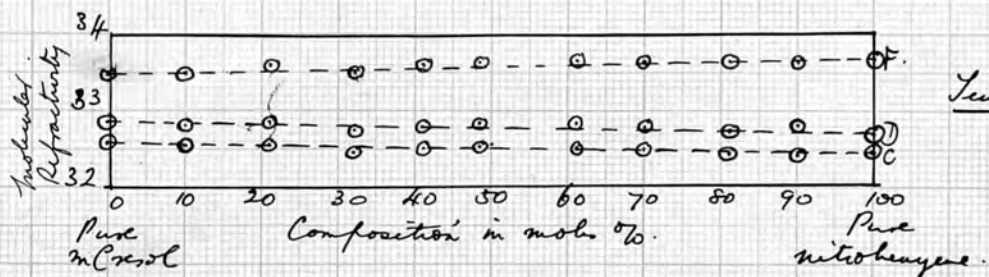 34
F.
Molecular
Refractivity
33
D
C
32
0 10 20 30 40 50 60 70 80 90 100
Pure
mCresol
Composition in mols %.
Pure
nitrobenzene.